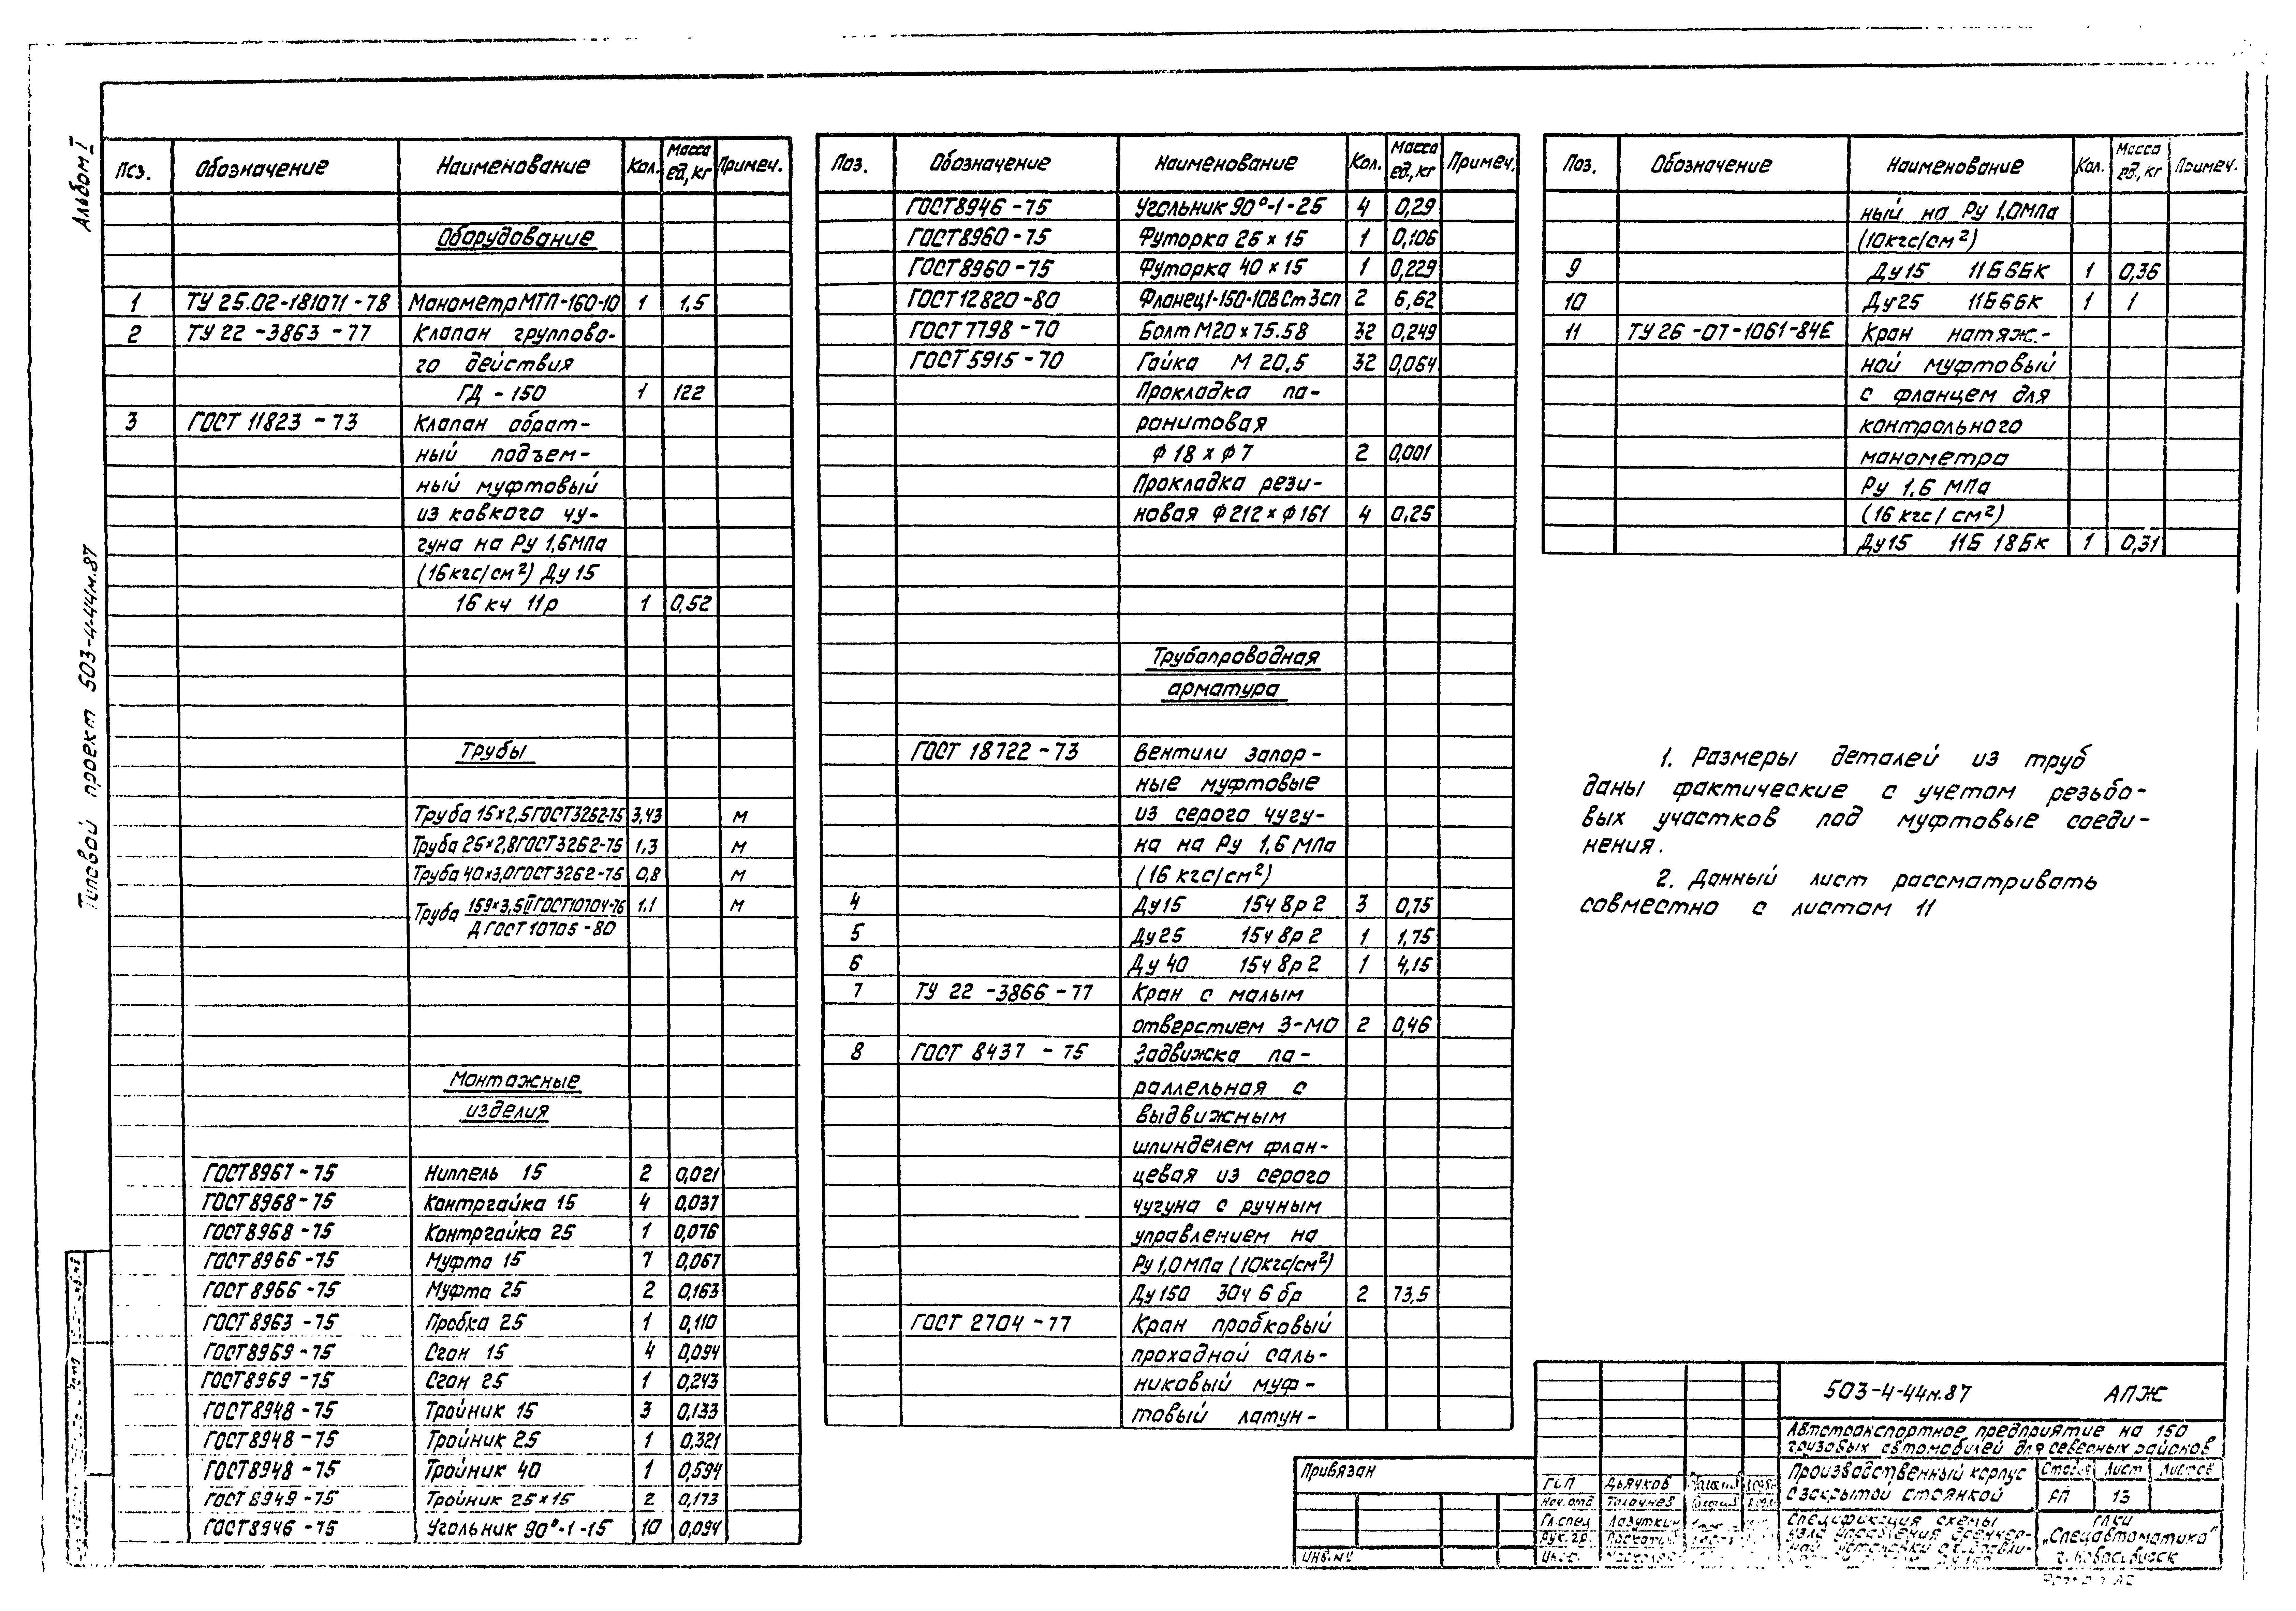 Альбом I
Типовой проект 503-4-44м.87
Поз. Обозначение Наименование Кол. Масса ед,кг Примеч.
Оборудование
1 ТУ 25.02-181071-78 Манометр МТП-160-10 1 1,5
2 ТУ 22-3863-77 Клапан группово-
го действия
ГД-150 1 122
3 ГОСТ 11823-73 Клапан обрат-
ный подъем-
ный муфтовый
из ковкого чу-
гуна на Ру 1,6МПа
(16кгс/см²) Ду 15
16 кч 11р 1 0,52
Трубы
Труба 15×2,5 ГОСТ 3262-75 3,43 м
Труба 25×2,8 ГОСТ 3262-75 1,3 м
Труба 40×3,0 ГОСТ 3262-75 0,8 м
Труба 159×3,5 II ГОСТ 10704-76 1,1 м
Д ГОСТ 10705-80
Монтажные
изделия
ГОСТ 8967-75 Ниппель 15 2 0,021
ГОСТ 8968-75 Контргайка 15 4 0,037
ГОСТ 8968-75 Контргайка 25 1 0,076
ГОСТ 8966-75 Муфта 15 7 0,067
ГОСТ 8966-75 Муфта 25 2 0,163
ГОСТ 8963-75 Пробка 25 1 0,110
ГОСТ 8969-75 Сгон 15 4 0,094
ГОСТ 8969-75 Сгон 25 1 0,243
ГОСТ 8948-75 Тройник 15 3 0,133
ГОСТ 8948-75 Тройник 25 1 0,321
ГОСТ 8948-75 Тройник 40 1 0,594
ГОСТ 8949-75 Тройник 25×15 2 0,173
ГОСТ 8946-75 Угольник 90°-1-15 10 0,094
Поз. Обозначение Наименование Кол. Масса ед,кг Примеч.
ГОСТ 8946-75 Угольник 90°-1-25 4 0,29
ГОСТ 8960-75 Футорка 25×15 1 0,106
ГОСТ 8960-75 Футорка 40×15 1 0,229
ГОСТ 12820-80 Фланец 1-150-10ВСт3сп 2 6,62
ГОСТ 7798-70 Болт М20×75.58 32 0,249
ГОСТ 5915-70 Гайка М 20.5 32 0,064
Прокладка па-
ранитовая
Ф 18 × Ф 7 2 0,001
Прокладка рези-
новая Ф 212 × Ф 161 4 0,25
Трубопроводная
арматура
ГОСТ 18722-73 Вентили запор-
ные муфтовые
из серого чугу-
на на Ру 1,6 МПа
(16 кгс/см²)
4 Ду 15 15ч 8р 2 3 0,75
5 Ду 25 15ч 8р 2 1 1,75
6 Ду 40 15ч 8р 2 1 4,15
7 ТУ 22-3866-77 Кран с малым
отверстием 3-МО 2 0,46
8 ГОСТ 8437-75 Задвижка па-
раллельная с
выдвижным
шпинделем флан-
цевая из серого
чугуна с ручным
управлением на
Ру 1,0 МПа (10кгс/см²)
Ду 150 30ч 6 бр 2 73,5
ГОСТ 2704-77 Кран пробковый
проходной саль-
никовый муф-
товый латун-
Поз. Обозначение Наименование Кол. Масса ед., кг Примеч.
ный на Ру 1,0МПа
(10кгс/см²)
9 Ду 15 11Б6БК 1 0,36
10 Ду 25 11Б6БК 1 1
11 ТУ 26-07-1061-84Е Кран натяж.-
ной муфтовый
с фланцем для
контрольного
манометра
Ру 1,6 МПа
(16 кгс/см²)
Ду 15 11Б 18Бк 1 0,31
1. Размеры деталей из труб
даны фактические с учетом резьбо-
вых участков под муфтовые соеди-
нения.
2. Данный лист рассматривать
совместно с листом 11
503-4-44м.87 АПЖ
Автотранспортное предприятие на 150
грузовых автомобилей для северных районов
Производственный корпус
с закрытой стоянкой
Стадия Лист Листов
РП 13
Спецификация схемы
узла управления
ной установки
„Спецавтоматика"
г. Новосибирск
Привязан
ИНВ.№
ГИП Дьячков
Нач.отд
Гл.спец Лазуткин
Рук.гр.